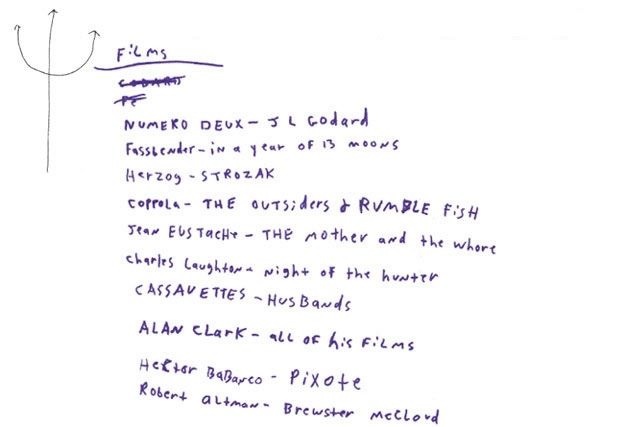 FiLMS
GODARD
NUMERO DEUX - J L Godard
Fassbender - in a year of 13 moons
Herzog - STROZAK
COPPOLA - THE OUTSiDERS & RUMBLE FISH
Jean EUSTACHE - THE MOTHER and the whore
Charles Laughton - Night of the hunter
CASSAVETTES - HUSBANDS
ALAN CLARK - all of his FiLMS
Hector BaBanco - Pixote
Robert altman - Brewster McCloud